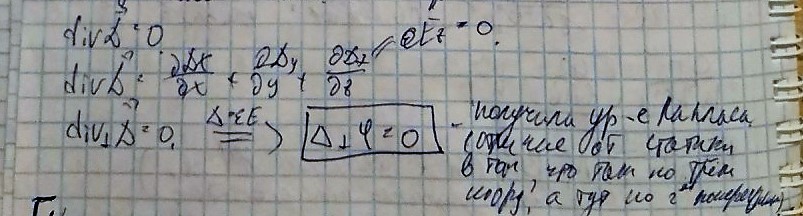 div D⃗ = 0
div D⃗ = ∂Dx/∂x + ∂Dy/∂y + ∂Dz/∂z // εEz = 0.
div⊥ D⃗ = 0. D=εE ⟹ Δ⊥φ = 0 - получили ур-е Лапласа
(отличие от статики
в том, что там по трём
коорд, а тут по 2 поперечным)